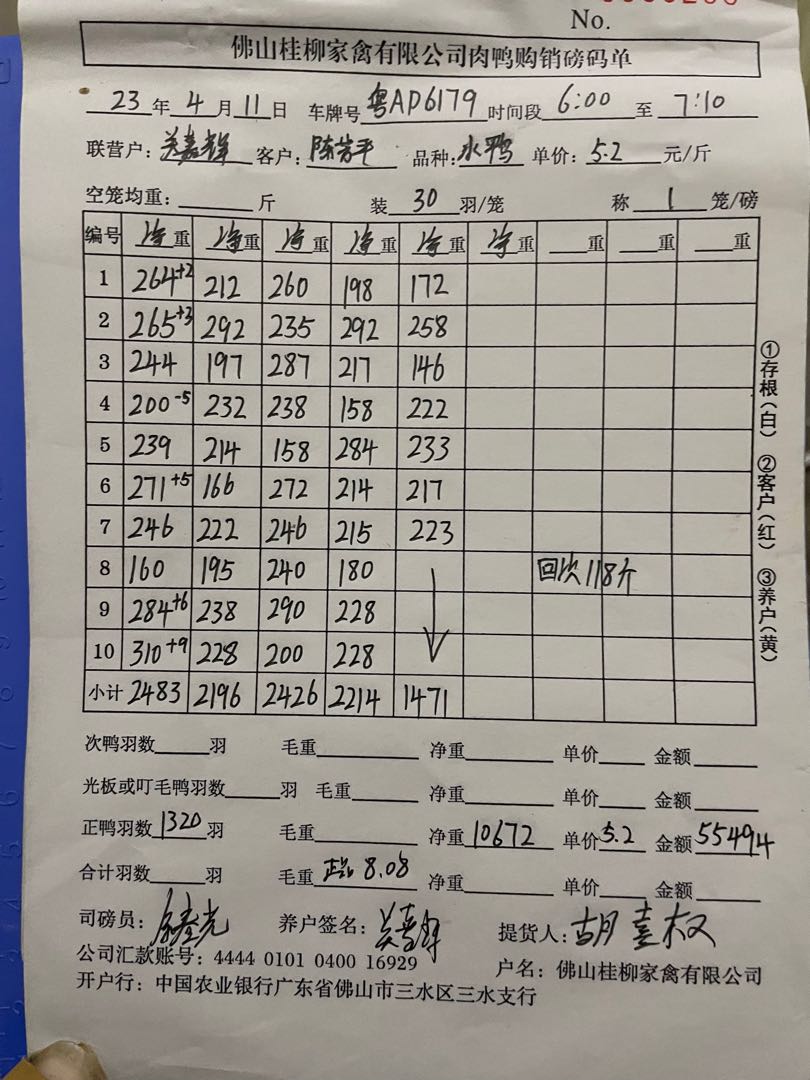 No.
佛山桂柳家禽有限公司肉鸭购销磅码单
23年4月11日 车牌号粤AD6179 时间段6:00至7:10
联营户:关嘉辉 客户:陈 平 品种:水鸭 单价:5.2元/斤
空笼均重:斤 装30羽/笼 称1笼/磅
编号 净重 净重 净重 净重 净重 净重 重 重 重
1 264+2 212 260 198 172
2 265+3 292 235 292 258
3 244 197 287 217 146
4 200-5 232 238 158 222
5 239 214 158 284 233
6 271+5 166 272 214 217
7 246 222 246 215 223
8 160 195 240 180 回次118斤
9 284+6 238 290 228
10 310+9 228 200 228
小计 2483 2196 2426 2214 1471
次鸭羽数羽 毛重 净重 单价 金额
光板或叮毛鸭羽数羽 毛重 净重 单价 金额
正鸭羽数1320羽 毛重 净重10672 单价5.2 金额55494
合计羽数羽 毛重 8.08 净重 单价 金额
司磅员: 养户签名:关嘉辉 提货人:胡 权
公司汇款账号:4444 0101 0400 16929 户名:佛山桂柳家禽有限公司
开户行:中国农业银行广东省佛山市三水区三水支行
①存根(白) ②客户(红) ③养户(黄)